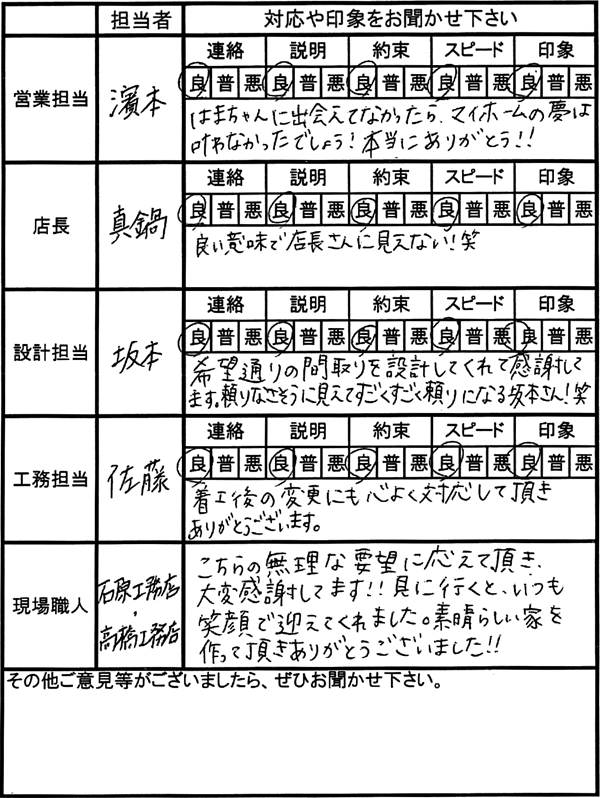 担当者 対応や印象をお聞かせ下さい
営業担当 濱本
連絡 説明 約束 スピード 印象
良 普 悪 良 普 悪 良 普 悪 良 普 悪 良 普 悪
はまちゃんに出会えてなかったら、マイホームの夢は
叶わなかったでしょう!本当にありがとう!!
店長 真鍋
連絡 説明 約束 スピード 印象
良 普 悪 良 普 悪 良 普 悪 良 普 悪 良 普 悪
良い意味で店長さんに見えない!笑
設計担当 坂本
連絡 説明 約束 スピード 印象
良 普 悪 良 普 悪 良 普 悪 良 普 悪 良 普 悪
希望通りの間取りを設計してくれて感謝して
ます。頼りなさそうに見えてすごくすごく頼りになる坂本さん!笑
工務担当 佐藤
連絡 説明 約束 スピード 印象
良 普 悪 良 普 悪 良 普 悪 良 普 悪 良 普 悪
着工後の変更にも心よく対応して頂き
ありがとうございます。
現場職人 石原工務店・
高橋工務店
こちらの無理な要望に応えて頂き、
大変感謝してます!!見に行くと、いつも
笑顔で迎えてくれました。素晴らしい家を
作って頂きありがとうございました!!
その他ご意見等がございましたら、ぜひお聞かせ下さい。